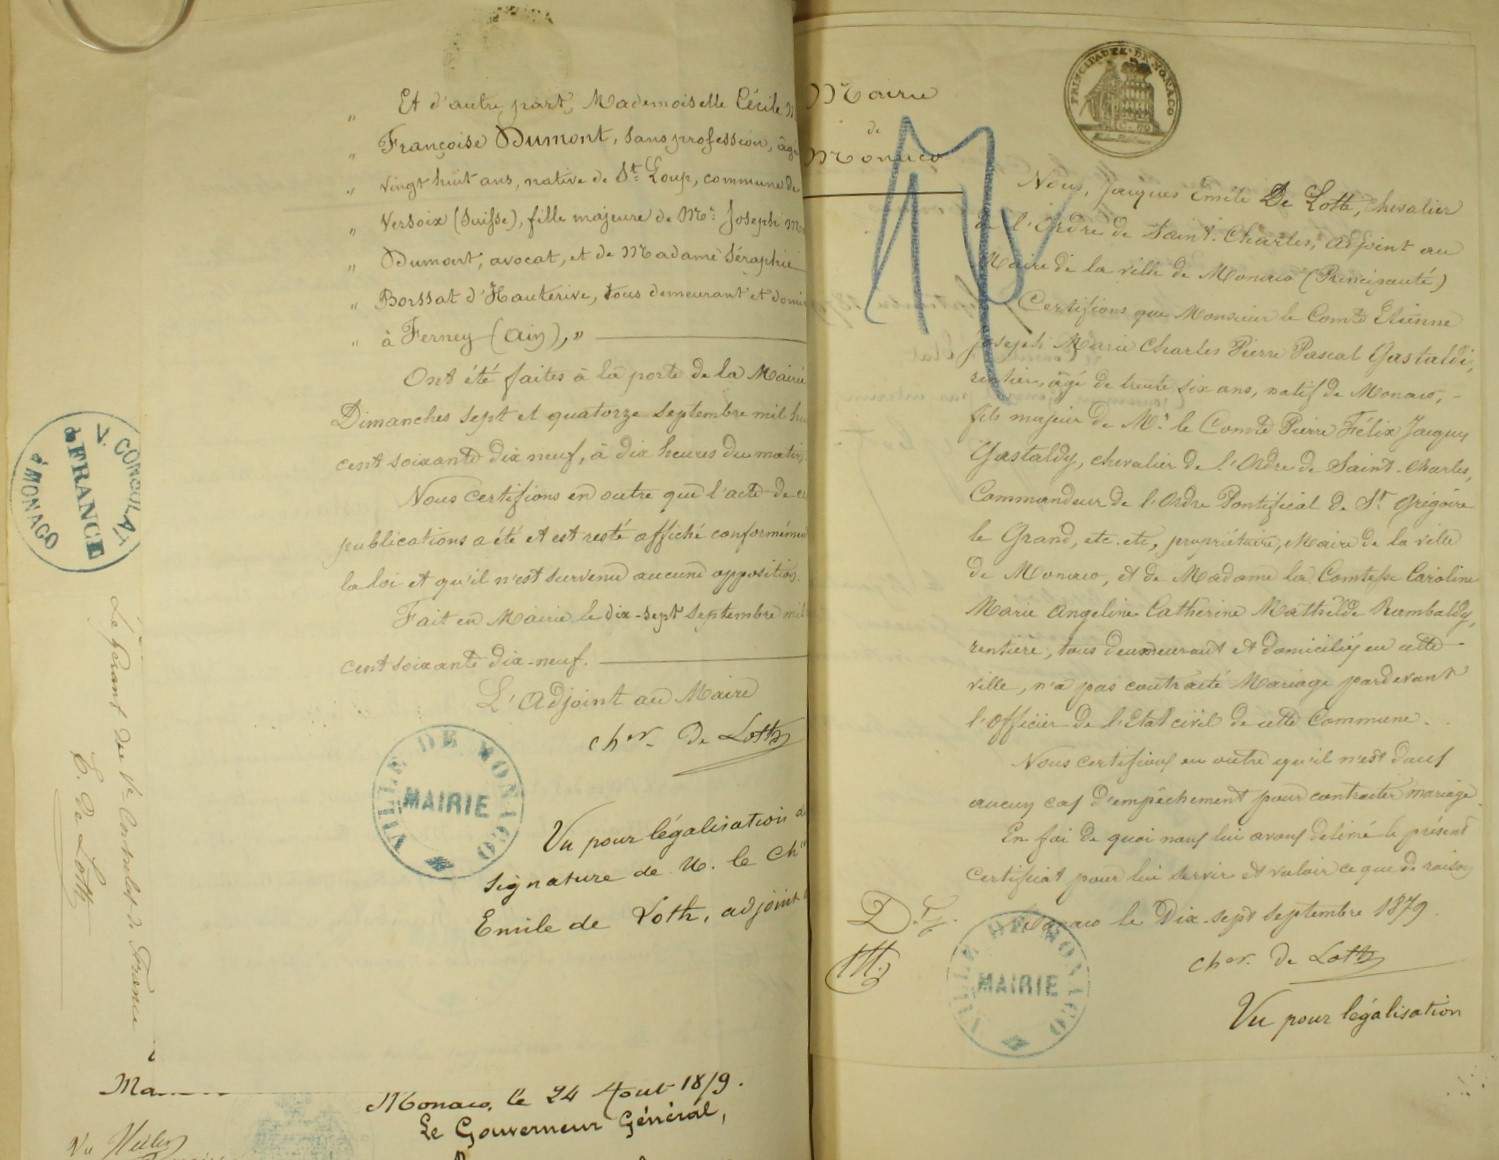 " Et d'autre part, Mademoiselle Cécile
" Françoise Dumont, sans profession, âg
" vingt huit ans, native de St. Loup, commune de
" Versoix (Suisse), fille majeure de Mr. Joseph
" Dumont, avocat, et de Madame Séraphie
" Borssat d'Hauterive, tous demeurant et domi
" à Ferney (Ain), "
Ont été faites à la porte de la Mairie
Dimanches sept et quatorze Septembre mil hu
cent soixante dix neuf, à dix heures du matin,
Nous certifions en outre que l'acte de c
publications a été et est resté affiché conformémen
la loi et qu'il n'est survenu aucune opposition.
Fait en Mairie le dix-sept Septembre mil
cent soixante dix-neuf.
L'adjoint au Maire
cher. De Loth
VILLE DE MONACO
MAIRIE
Vu pour légalisation d
signature de M. le Chr
Emile de Loth, adjoint
V. CONSULAT
DE FRANCE
À MONACO
Le gérant du Vce Consulat de France
E. de Loth
Ma
Monaco, le 24 Aout 1879.
Le Gouverneur Général,
Vu
Mairie
de
Monaco
PRINCIPAUTÉ DE MONACO
Nous, Jacques Emile De Loth, Chevalier
de l'Ordre de Saint-Charles, adjoint au
Maire de la ville de Monaco (Principauté)
Certifions que Monsieur le Comte Etienne
Joseph Marie Charles Pierre Pascal Gastaldi,
rentier, âgé de trente six ans, natif de Monaco, -
fils majeur de Mr. le Comte Pierre Félix Jacques
Gastaldy, chevalier de l'Ordre de Saint-Charles,
Commandeur de l'Ordre Pontifical de St. Grégoire
le Grand, etc. etc, propriétaire, Maire de la ville
de Monaco, et de Madame la Comtesse Caroline
Marie Angeline Catherine Mathilde Rambaldy,
rentière, tous demeurant et domiciliés en cette
ville, n'a pas contracté Mariage pardevant
l'Officier de l'Etat civil de cette Commune.
Nous certifions en outre qu'il n'est dans
aucun cas d'empêchement pour contracter mariage.
En foi de quoi nous lui avons délivré le présent
Certificat pour lui servir et valoir ce que de raison
Monaco le Dix-sept Septembre 1879.
cher. De Loth
VILLE DE MONACO
MAIRIE
Vu pour légalisation